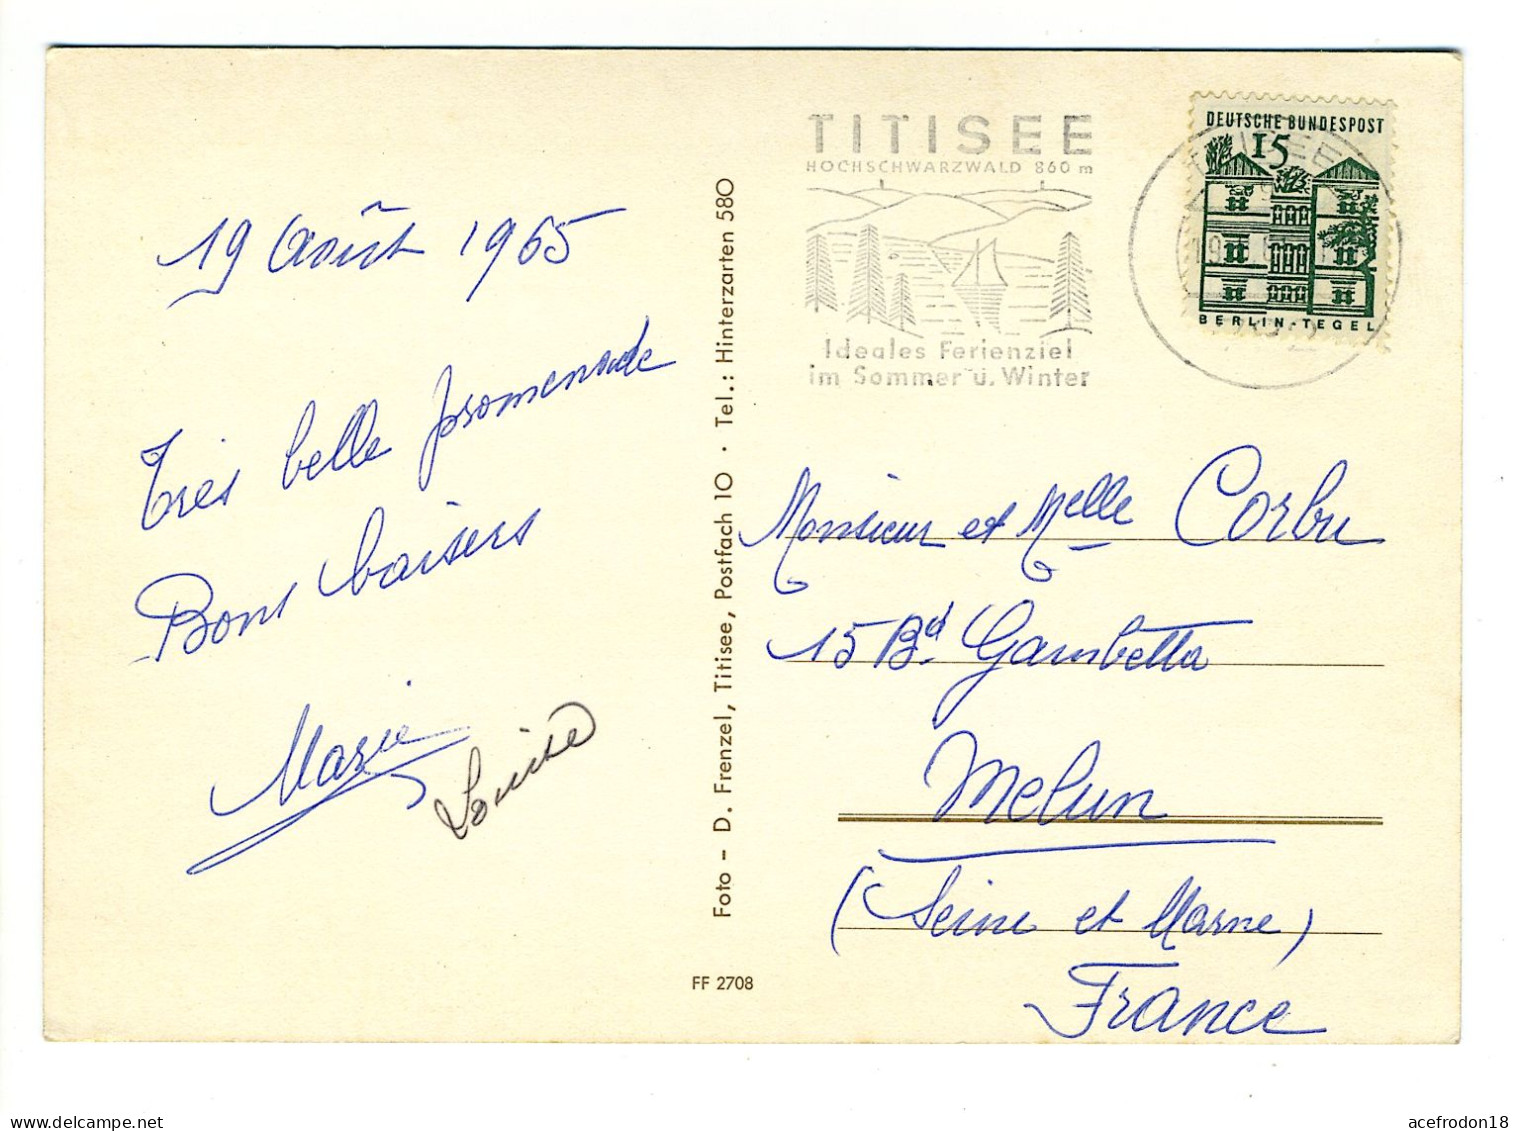 19 Août 1965
Très belle promenade
Bons baisers
Marie
Louise
Foto – D. Frenzel, Titisee, Postfach 10 · Tel.: Hinterzarten 580
FF 2708
TITISEE
HOCHSCHWARZWALD 860 m
Ideales Ferienziel
im Sommer u. Winter
TITISEE
DEUTSCHE BUNDESPOST
15
BERLIN-TEGEL
Monsieur et Melle Corbu
15 Bd Gambetta
Melun
(Seine et Marne)
France
acefrodon18